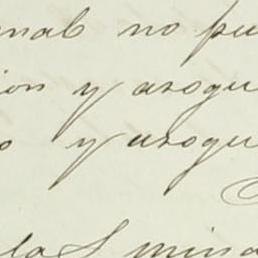 nal no pu
ion y azogu
o y azogu
las mina